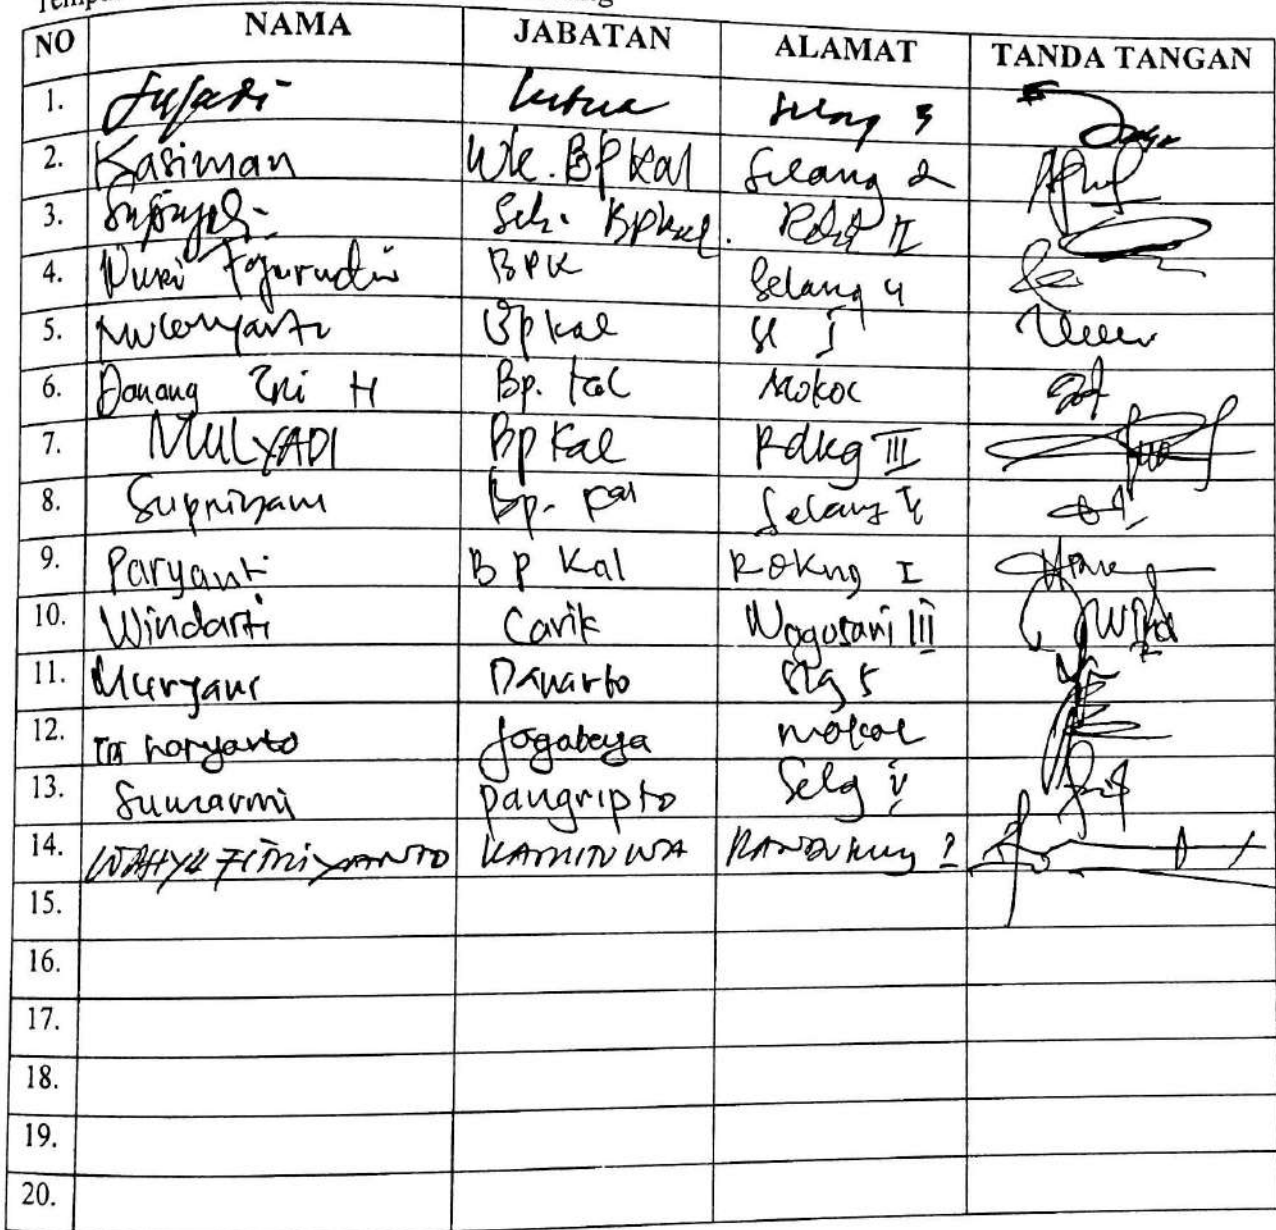 NO NAMA JABATAN ALAMAT TANDA TANGAN
1. Sujadi Ketua Selang 3
2. Kasiman Wk. BP Kal Selang 2
3. Sek. BPkal. II
4. Nuri BPK Selang 4
5. Bpkal Sl I
6. Danang Tri H Bp. Kal Mokol
7. MULYADI Bp Kal Rdkg III
8. Supriyani Bp. Kal Selang
9. Paryanti B P Kal Rdkng I
10. Windarti Carik Wogosari III
11. Muryani Danarto Slg 5
12. Haryanto Jogaboyo Mokol
13. Sumarmi Pangripto Selg
14. WAHYU FITRIYANTO KAMITUWA
15.
16.
17.
18.
19.
20.